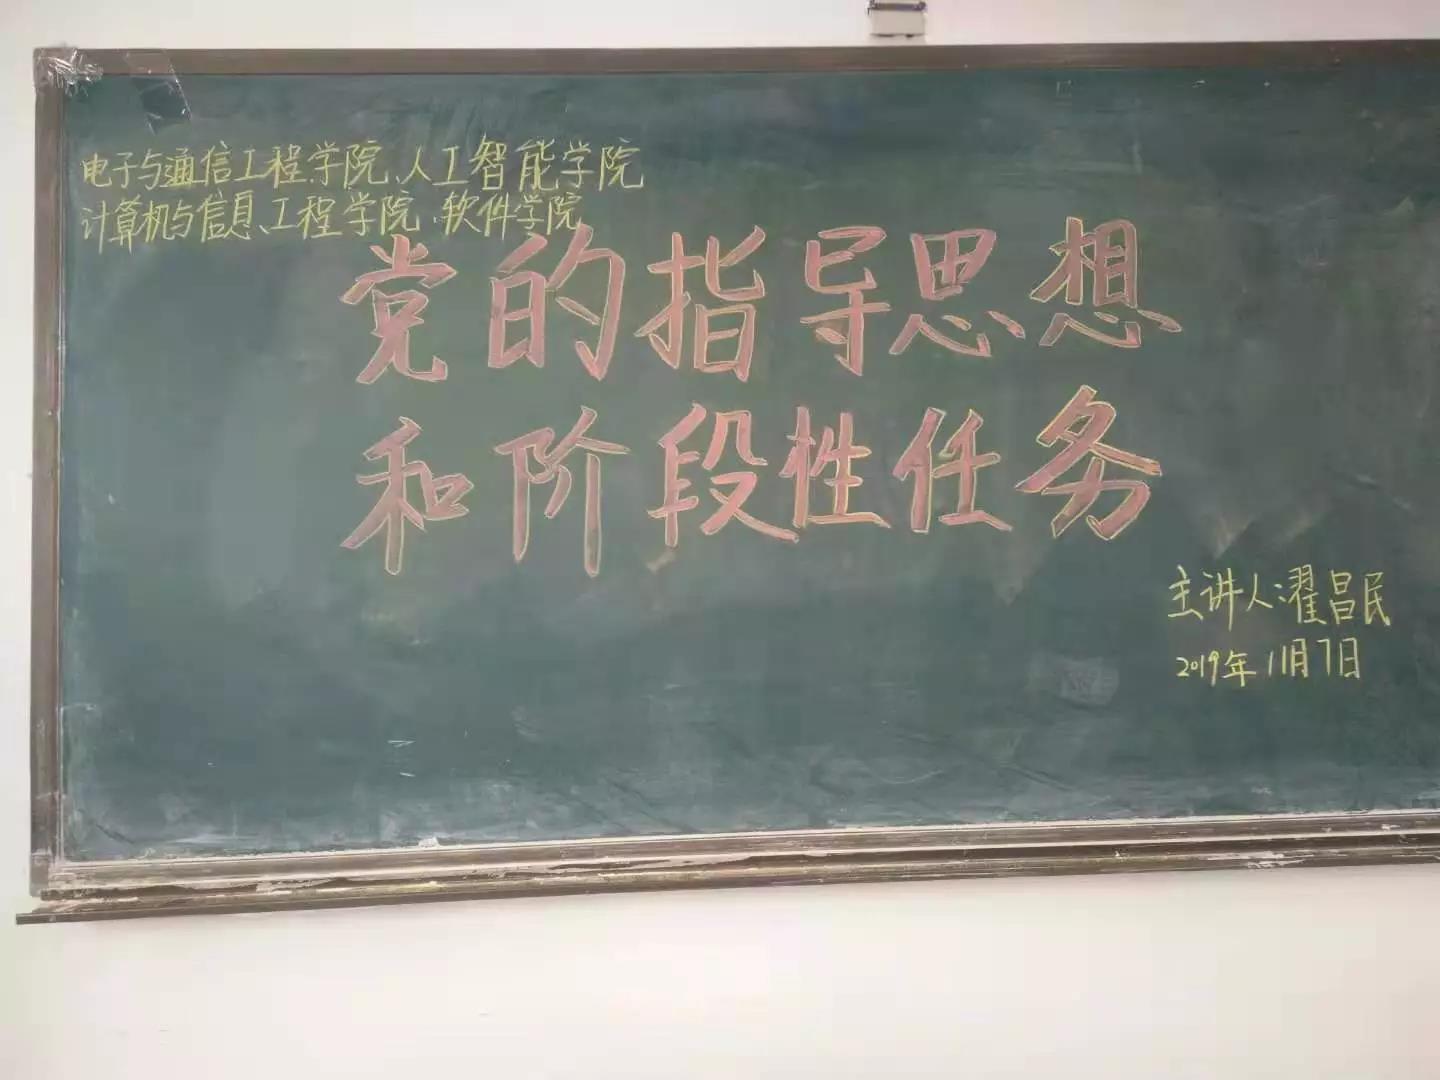 电子与通信工程学院、人工智能学院
计算机与信息工程学院、软件学院
党的指导思想
和阶段性任务
主讲人:濯昌民
2019年11月7日